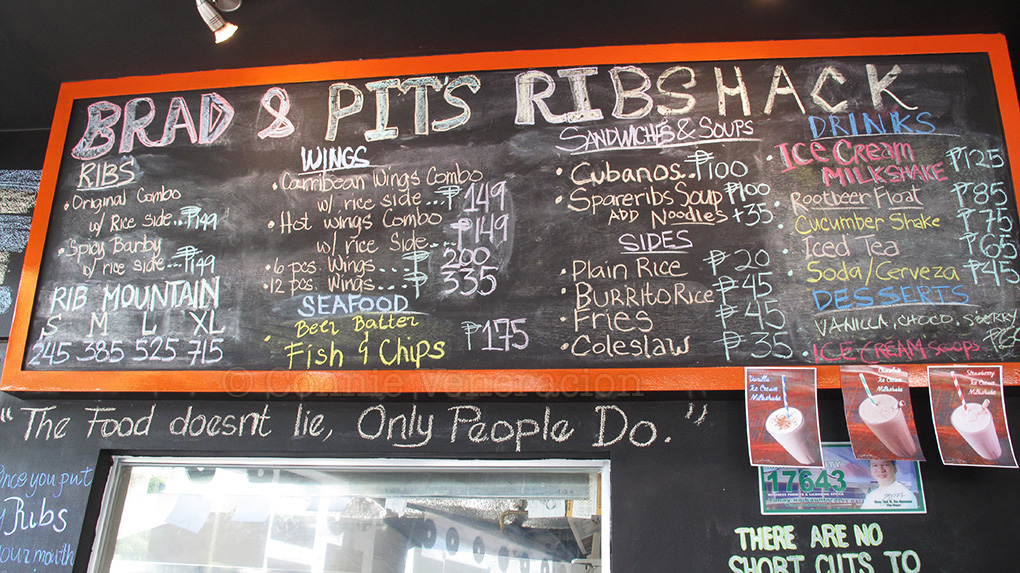 BRAD & PIT'S RIBSHACK
RIBS
• Original Combo
w/ Rice side...₱149
• Spicy Barby
w/ rice side...₱149
RIB MOUNTAIN
S M L XL
245 385 525 715
WINGS
• Carribean Wings Combo
w/ rice side...₱149
• Hot wings Combo
w/ rice Side...₱149
• 6 pcs. Wings...₱200
• 12 pcs. Wings...₱335
SEAFOOD
• Beer Batter
Fish & Chips ₱175
SANDWICHES & SOUPS
• Cubanos..₱100
• Spareribs Soup ₱100
ADD Noodles +35
SIDES
• Plain Rice ₱20
• BURRITO Rice ₱45
• Fries ₱45
• Coleslaw ₱35
DRINKS
• ICE CREAM
MILKSHAKE ₱125
• Rootbeer Float ₱85
• Cucumber Shake ₱75
• Iced Tea ₱65
• Soda/Cerveza ₱45
DESSERTS
VANILLA, CHOCO, S'BERRY
• ICE CREAM scoops ₱60
© Connie Veneracion
"The Food doesnt lie, Only People Do."
Vanilla Ice Cream
Milkshake
Chocolate
Ice Cream
Milkshake
Strawberry
Ice Cream
Milkshake
17643
Once you put
Ribs
your mouth
THERE ARE NO
SHORT CUTS TO